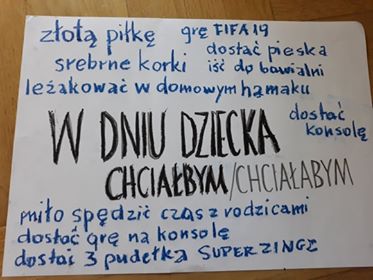 złotą piłkę
grę FIFA 19
dostać pieska
srebrne korki
iść do bawialni
leżakować w domowym hamaku
dostać
konsolę
W DNIU DZIECKA
CHCIAŁBYM/CHCIAŁABYM
miło spędzić czas z rodzicami
dostać grę na konsolę
dostać 3 pudełka SUPER ZINGS